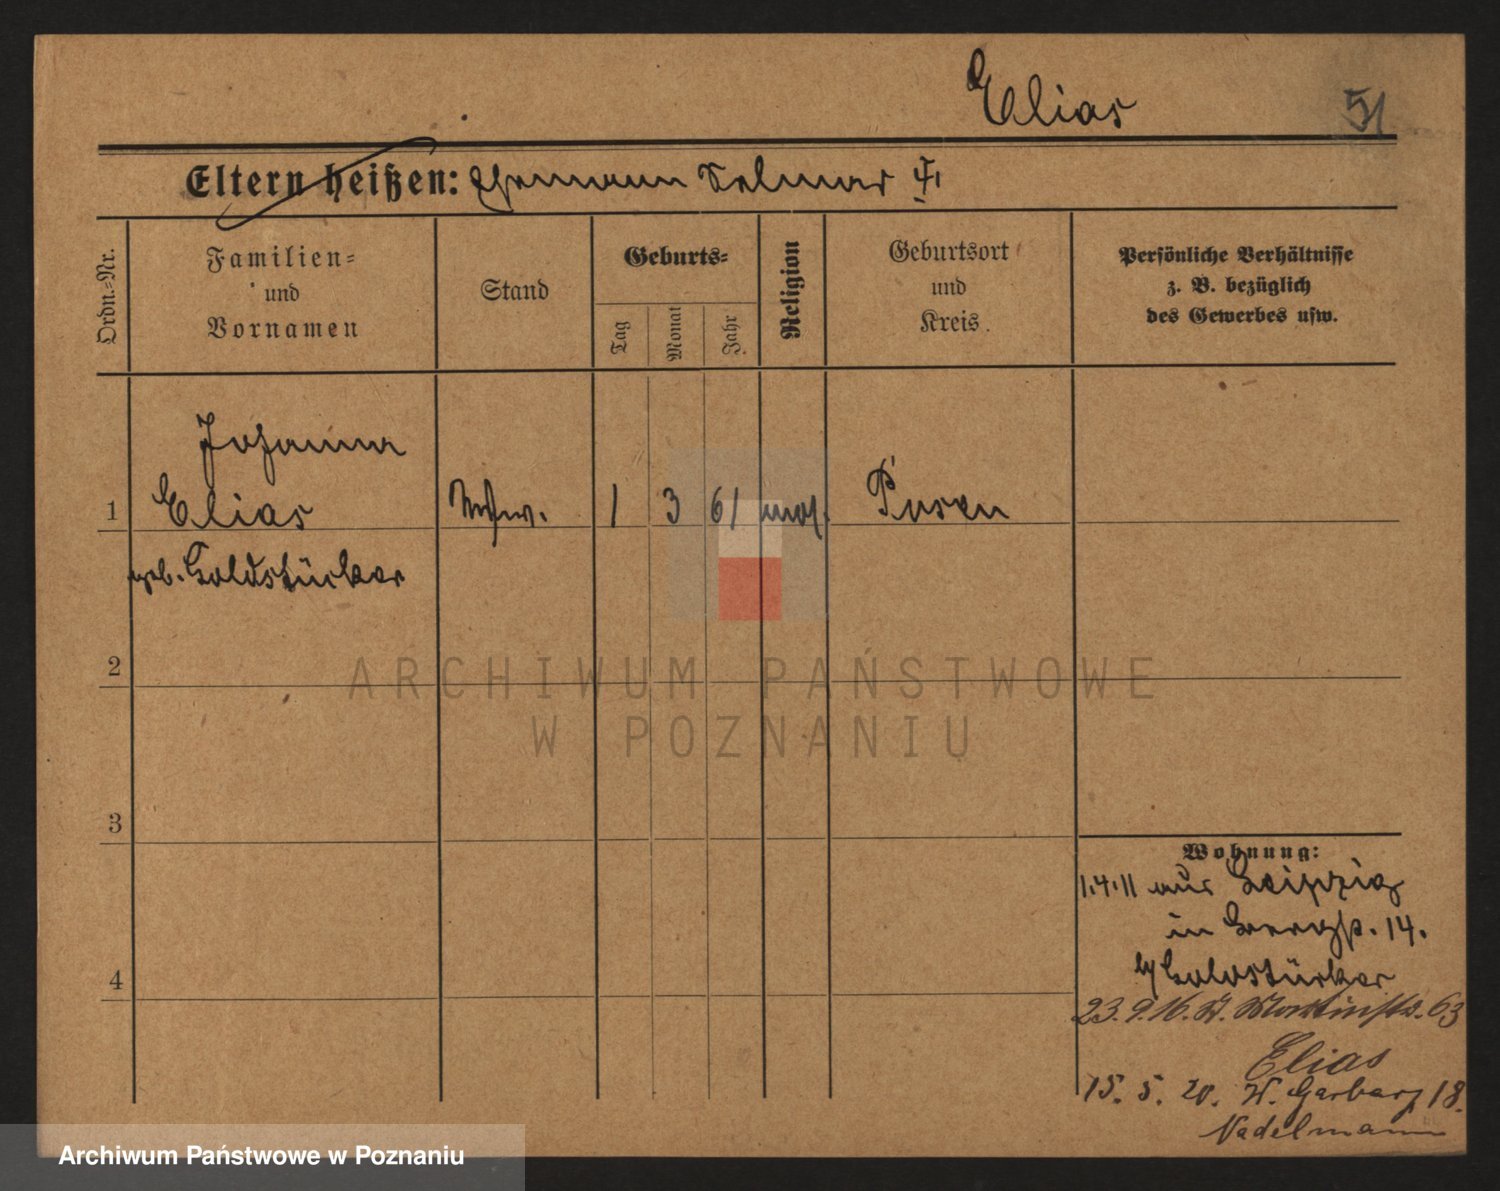 Elias
51
Eltern heißen: Ehemann Selmar †
Ordn.-Nr.
Familien-
und
Vornamen
Stand
Geburts-
Tag
Monat
Jahr
Religion
Geburtsort
und
Kreis.
Persönliche Verhältnisse
z. B. bezüglich
des Gewerbes usw.
Johanna
1 Elias Wwe. 1 3 61 mos. Posen
geb. Goldstücker
2
3
4
Wohnung:
1.4.11 aus Leipzig
in Bergstr. 14.
b/ Goldstücker
23.9.16. St. Martinstr. 63
Elias
15. 5. 20. W. Garbary 18.
Nadelmann
ARCHIWUM PAŃSTWOWE
W POZNANIU
Archiwum Państwowe w Poznaniu